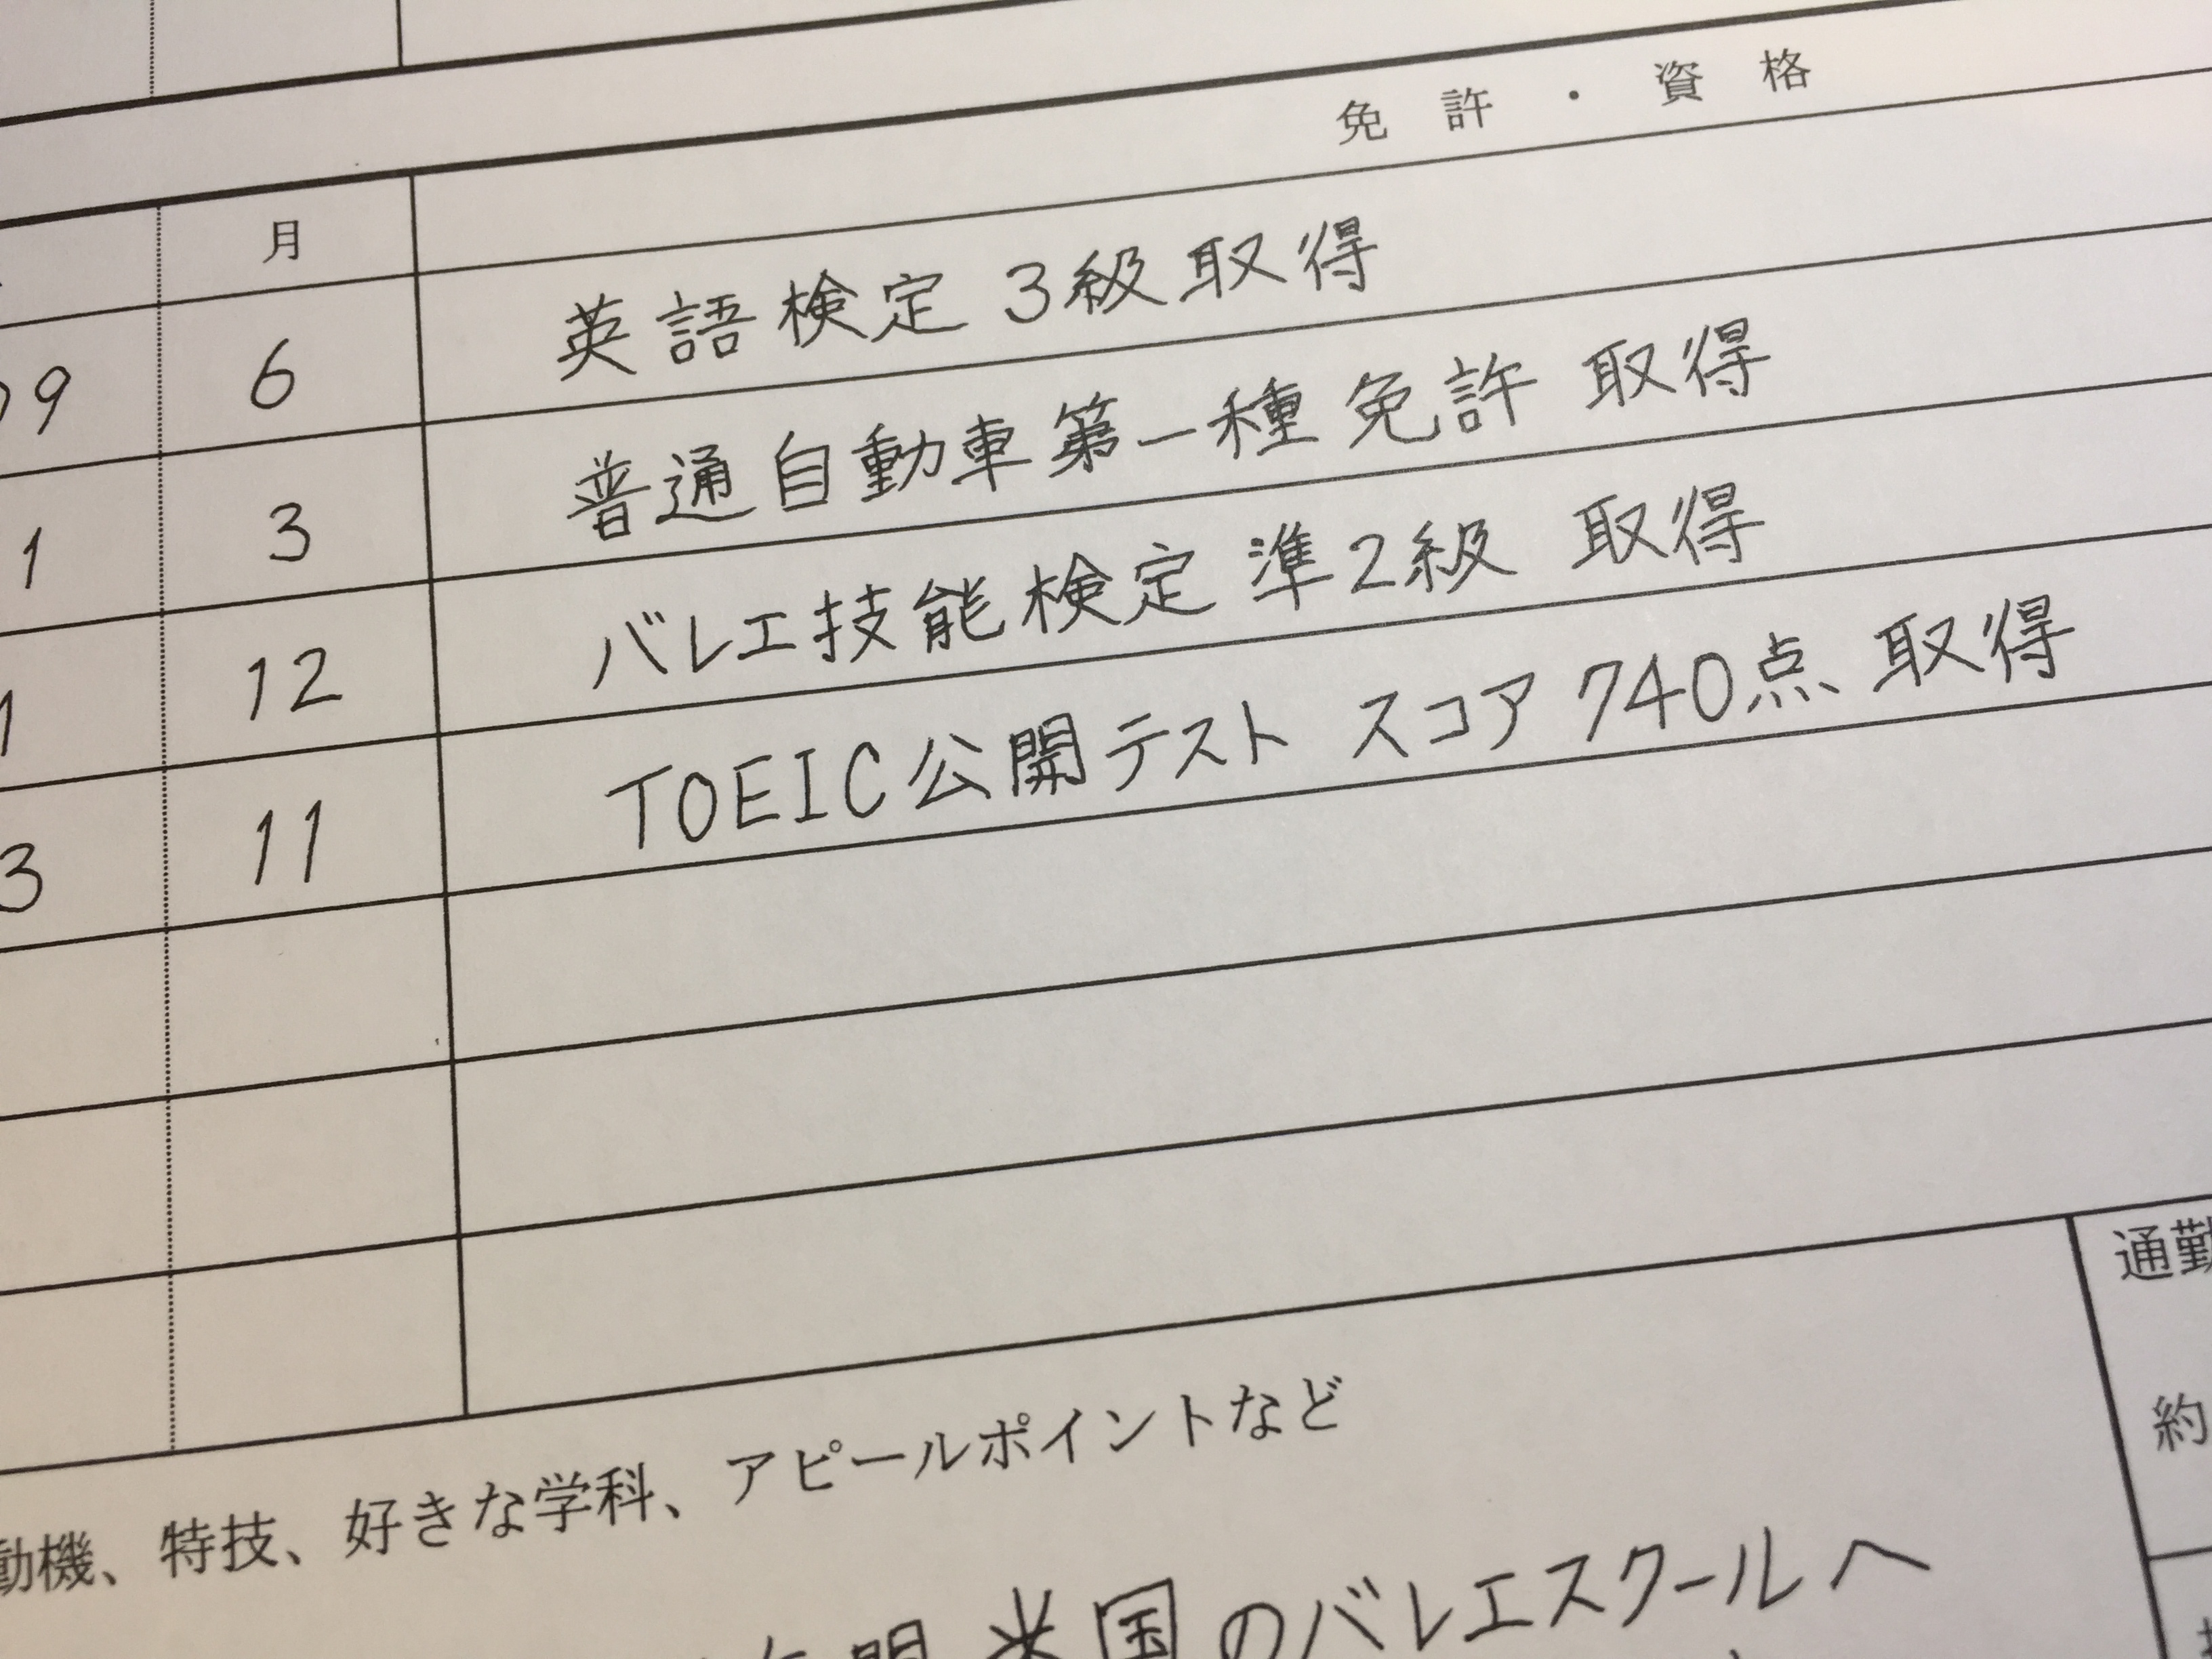 免許・資格
月
9 6 英語検定 3級取得
1 3 普通自動車第一種免許 取得
1 12 バレエ技能検定 準2級 取得
3 11 TOEIC公開テスト スコア 740点 取得
通勤
動機、特技、好きな学科、アピールポイントなど
約
年間 米国のバレエスクールへ